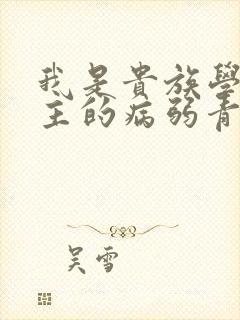 我是貴族學
主的病弱青
吴雪